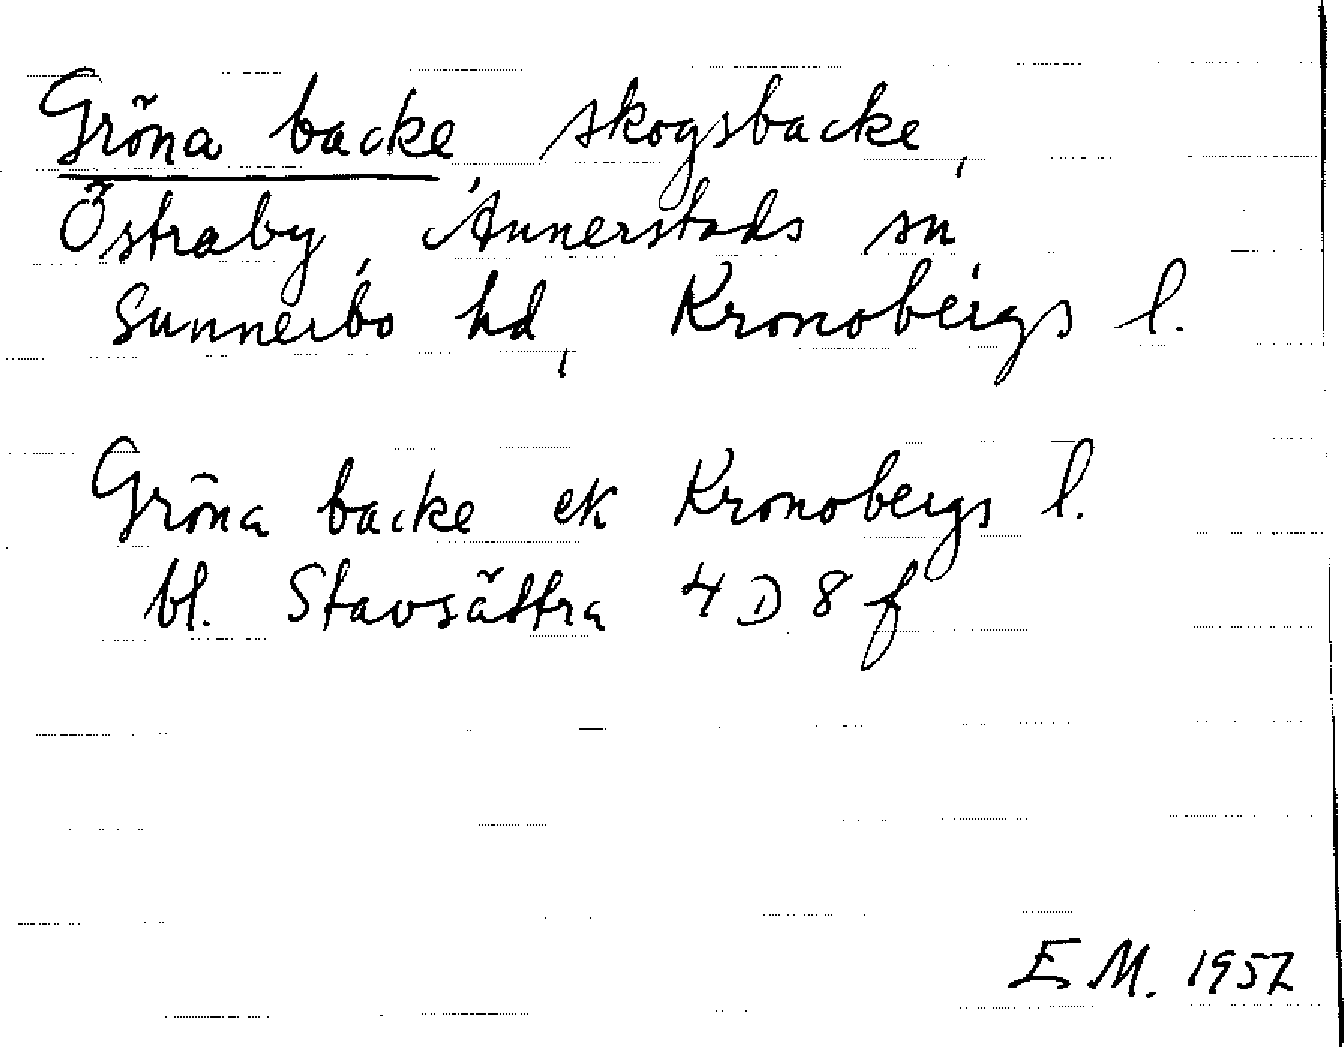 Gröna backe skogsbacke,
Östraby, Annerstads sn,
Sunnerbo hd, Kronobergs l.
Gröna backe ek Kronobergs l.
bl. Stavsättra 4 D 8 f
E M. 1957